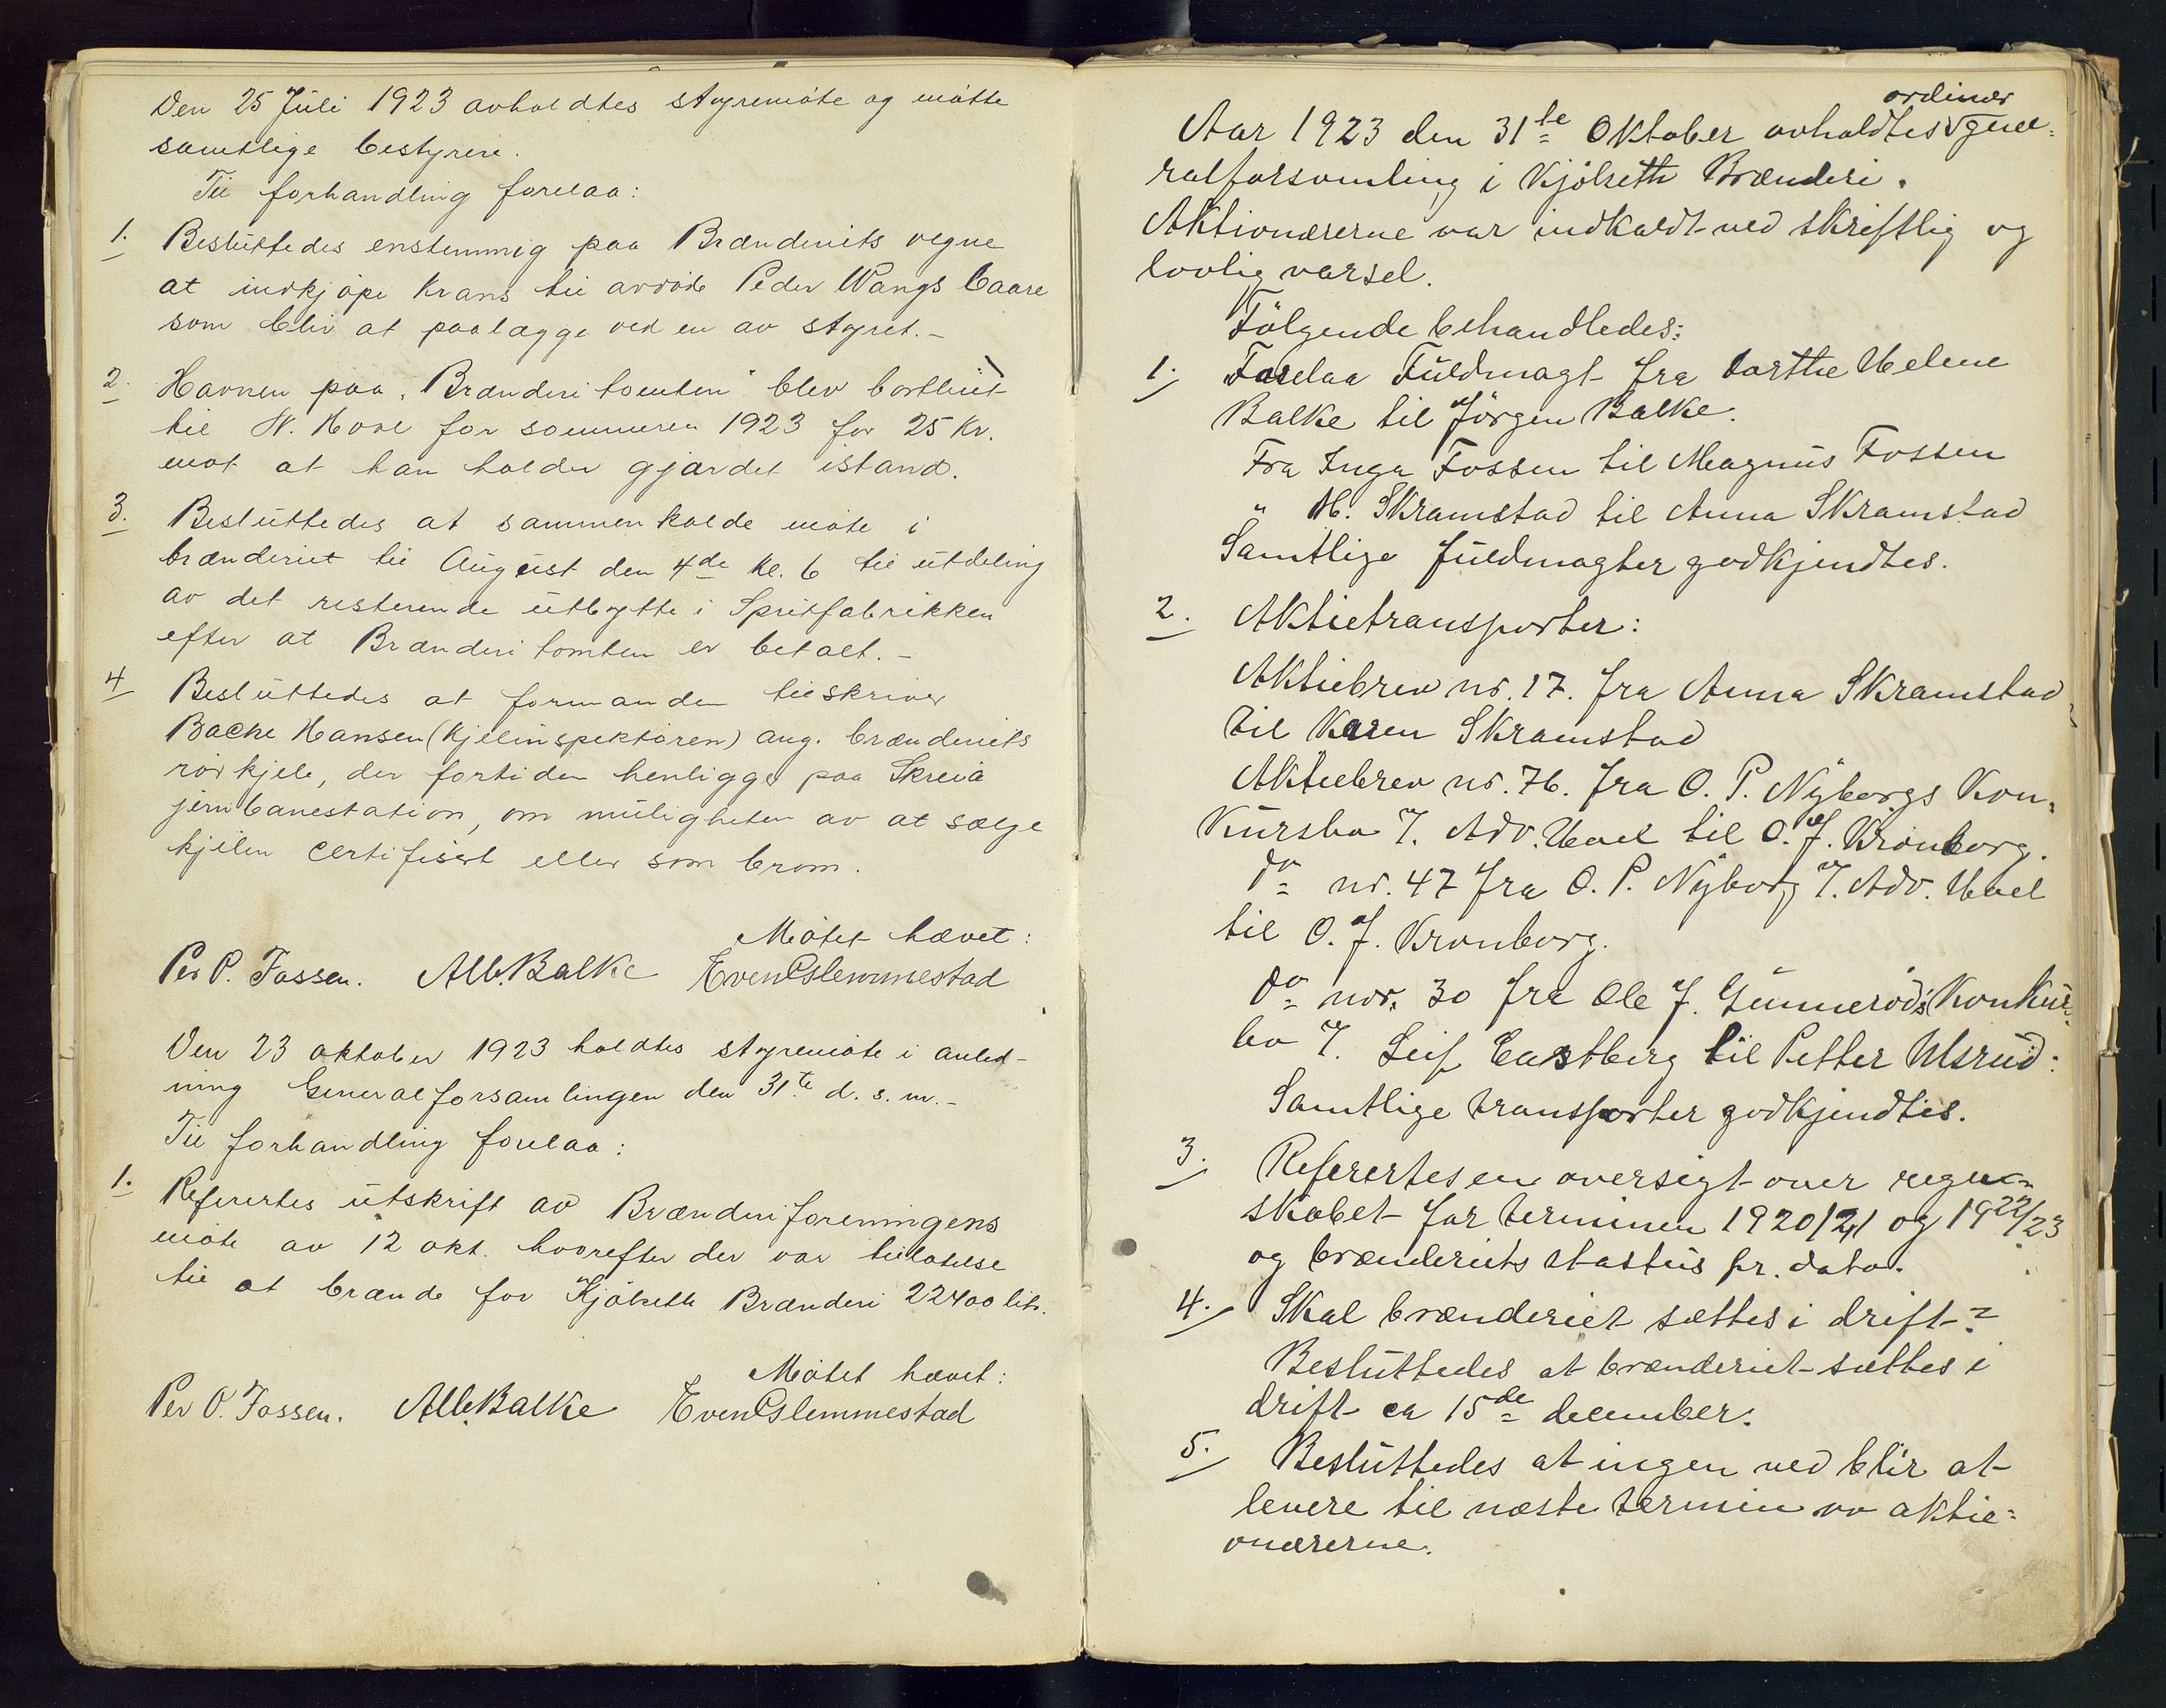 Den 25 Juli 1923 avholdtes styremöte og mötte
samtlige bestyrere.
Til forhandling forelaa:
1. Besluttedes enstemmig paa Brænderiets vegne
at indkjöpe krans til avdöde Peder Wangs baare
som blir at paalægge ved en av styret.-
2. Havnen paa "Brænderitomten" blev bortleiet
til N. Hoel for sommeren 1923 for 25 Kr.
mot at han holder gjærdet istand.
3. Besluttedes at sammenkalde möte i
brænderiet til August den 4de kl. 6 til utdeling
av det resterende utbytte i Spritfabrikken
efter at Brænderitomten er betalt.-
4 Besluttedes at formanden tilskriver
Bache Hansen (kjelinspektören) ang. brænderiets
rörkjele, der fortiden henligger paa Skreia
jernbanestation, om muligheten av at sælge
kjelen certifisert eller som brom.
Mötet hævet:
Per P. Fossen. Alb. Balke Even Eslemmestad
Den 23 oktober 1923 holdtes styremöte i anled-
ning Generalforsamlingen den 31te d. s. m.-
Til forhandling forelaa:
1. Referertes utskrift av Brænderiforeningens
möte av 12 okt. hvorefter der var tilladelse
til at brænde for Kjölseth Brænderi 22400 litr.
Mötet hævet:
Per O. Fossen. Alb. Balke Even Eslemmestad
ordinær
Aar 1923 den 31te Oktober avholdtes gene=
ralforsamling i Kjölseth Brænderi.
Aktionærerne var indkaldt ved skriftlig og
lovlig varsel.
Fölgende behandledes:
1. Forelaa Fuldmagt fra Dorthe Helene
Balke til Jörgen Balke.
Fra Inga Fossen til Magnus Fossen
" M. Skramstad til Anna Skramstad
Samtlige fuldmagter godkjendtes.
2. Aktietransporter:
Aktiebrev nr. 17. fra Anna Skramstad
til Karen Skramstad
Aktiebrev nr. 76. fra O. P. Nyborgs Kon=
kursbo v. Adv. Hoel til O. J. Kronborg.
do nr. 47 fra O. P. Nyborg v. Adv. Hoel
til O. J. Kronborg.
do nr. 30 fra Ole J. Gunneröds Konkur=
bo v. Leif Eastberg til Petter Ulsrud:
Samtlige transporter godkjendtes.
3. Refertes en oversigt over regn=
skabet for terminen 1920/21 og 1922/23
og brænderiets stastus pr. dato.
4. Skal brænderiet sættes i drift?
Besluttedes at brænderiet sættes i
drift ca 15de december.
5. Besluttedes at ingen ved blir at
levere til næste termin av aktie=
onærerne.